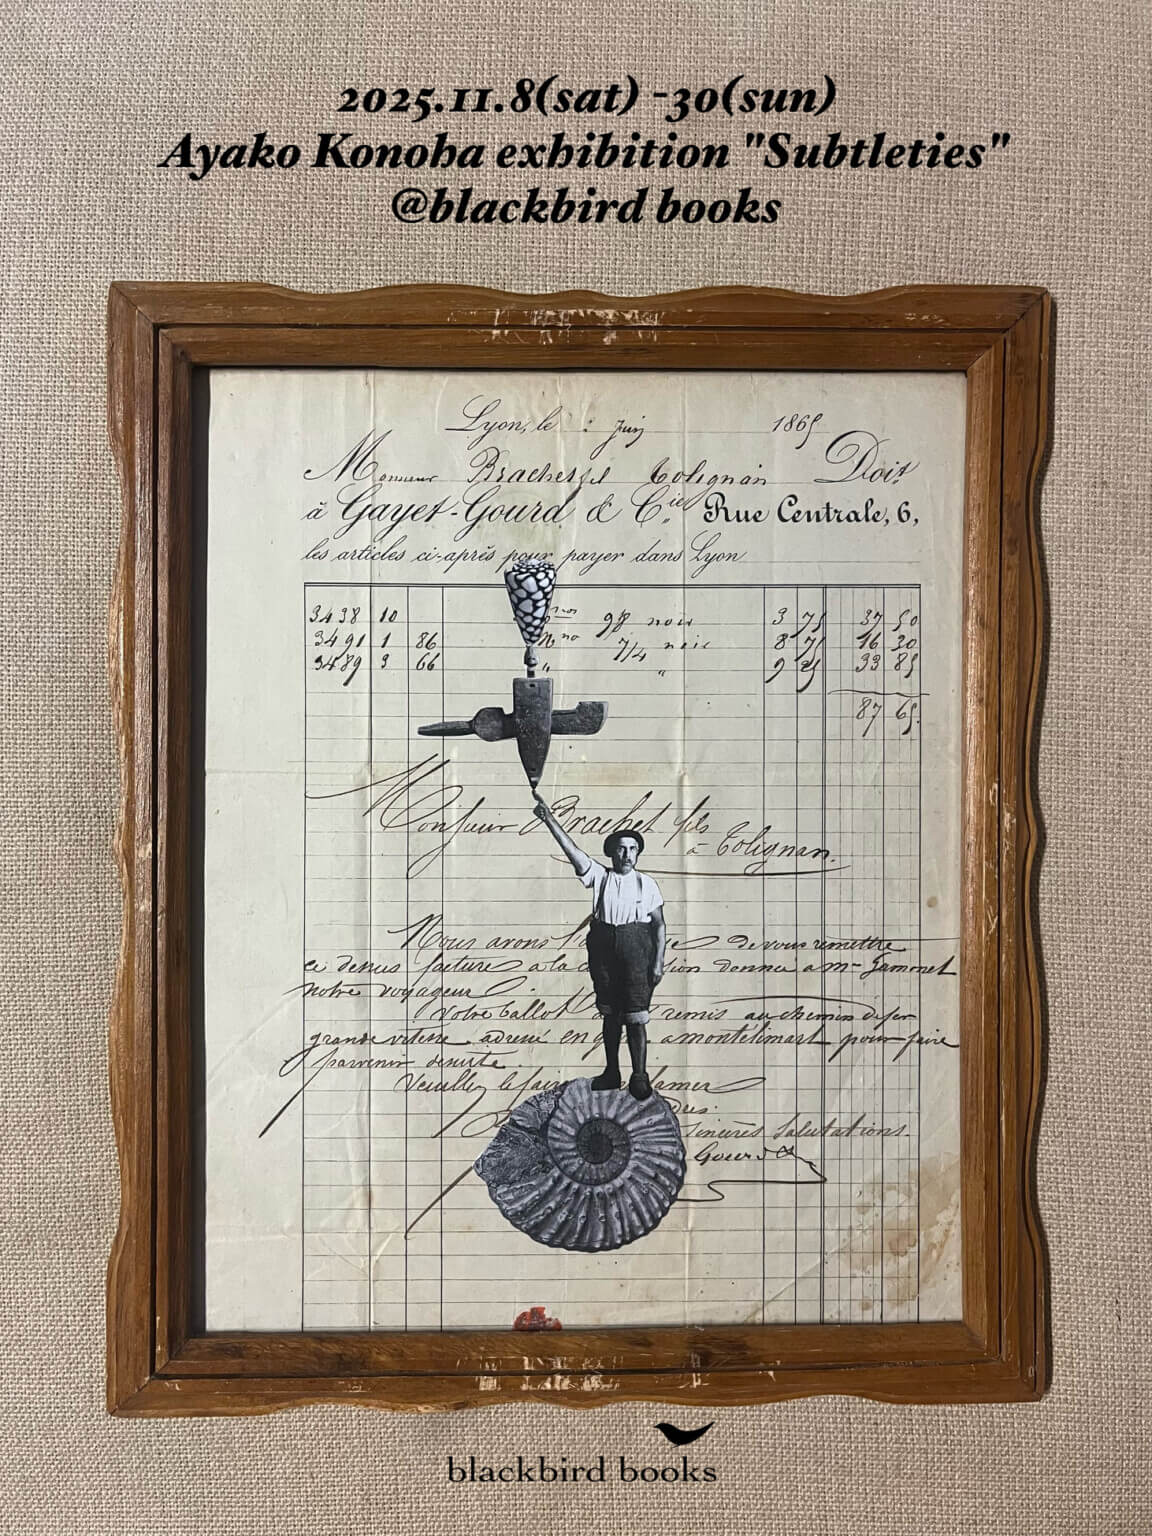 2025.11.8(sat) -30(sun)
Ayako Konoha exhibition "Subtleties"
@blackbird books
Lyon, le Juin 1865
Monsieur Doit
à Gayet-Gourd & Cie, Rue Centrale, 6,
les articles ci-après pour payer dans Lyon
3438 10 9/8 noir 3 75 37 50
3491 1 86 7/4 noir 8 75 16 30
3489 3 66 " " 9 25 33 85
87 65
Monsieur Brachet fils
à Tolignan.
Nous avons de vous remettre
ci dessus facture a la donnée a Mr Gamonet
notre voyageur.
Votre ballot remis au chemin de fer
grande vitesse adressé en a montelimart pour faire
parvenir
Veuillez
sincères salutations.
blackbird books